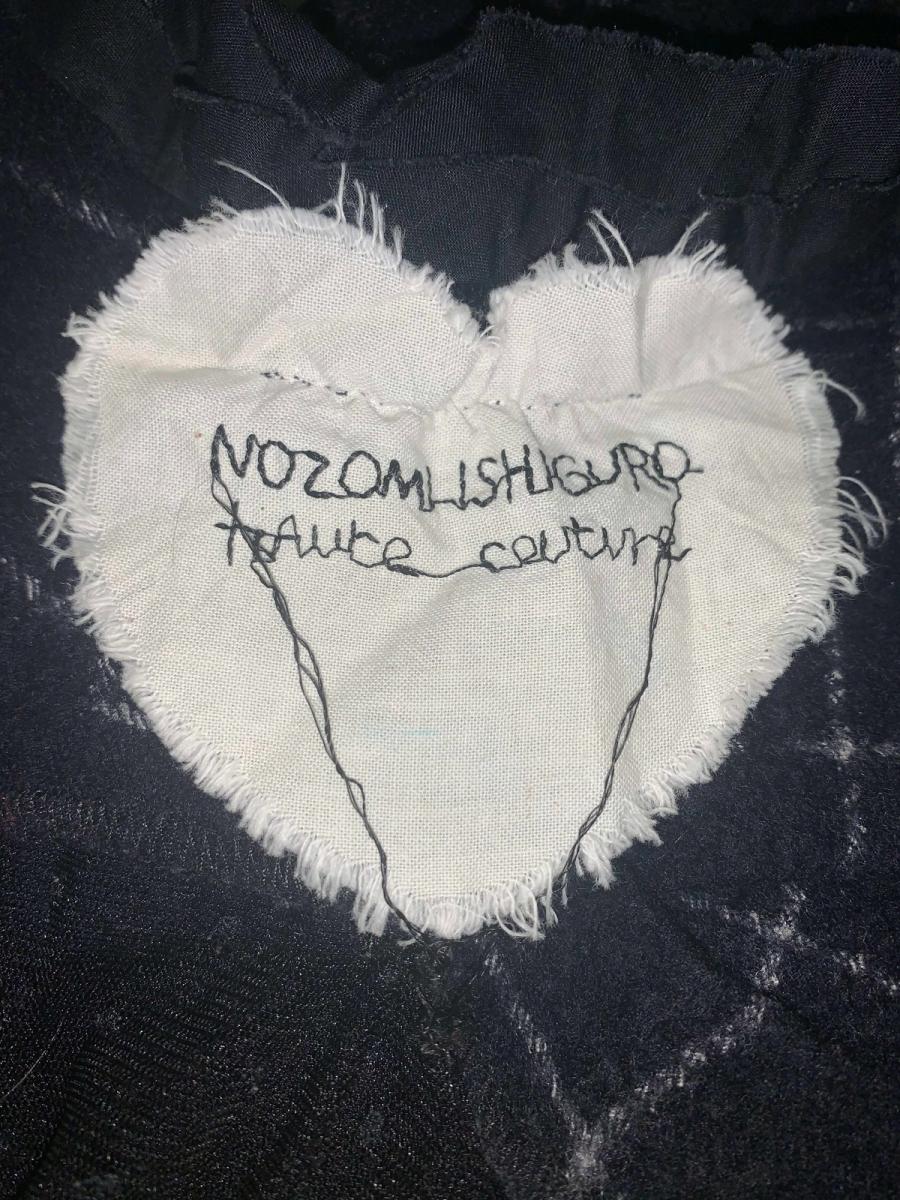 NOZOMI ISHIGURO
HAute couture